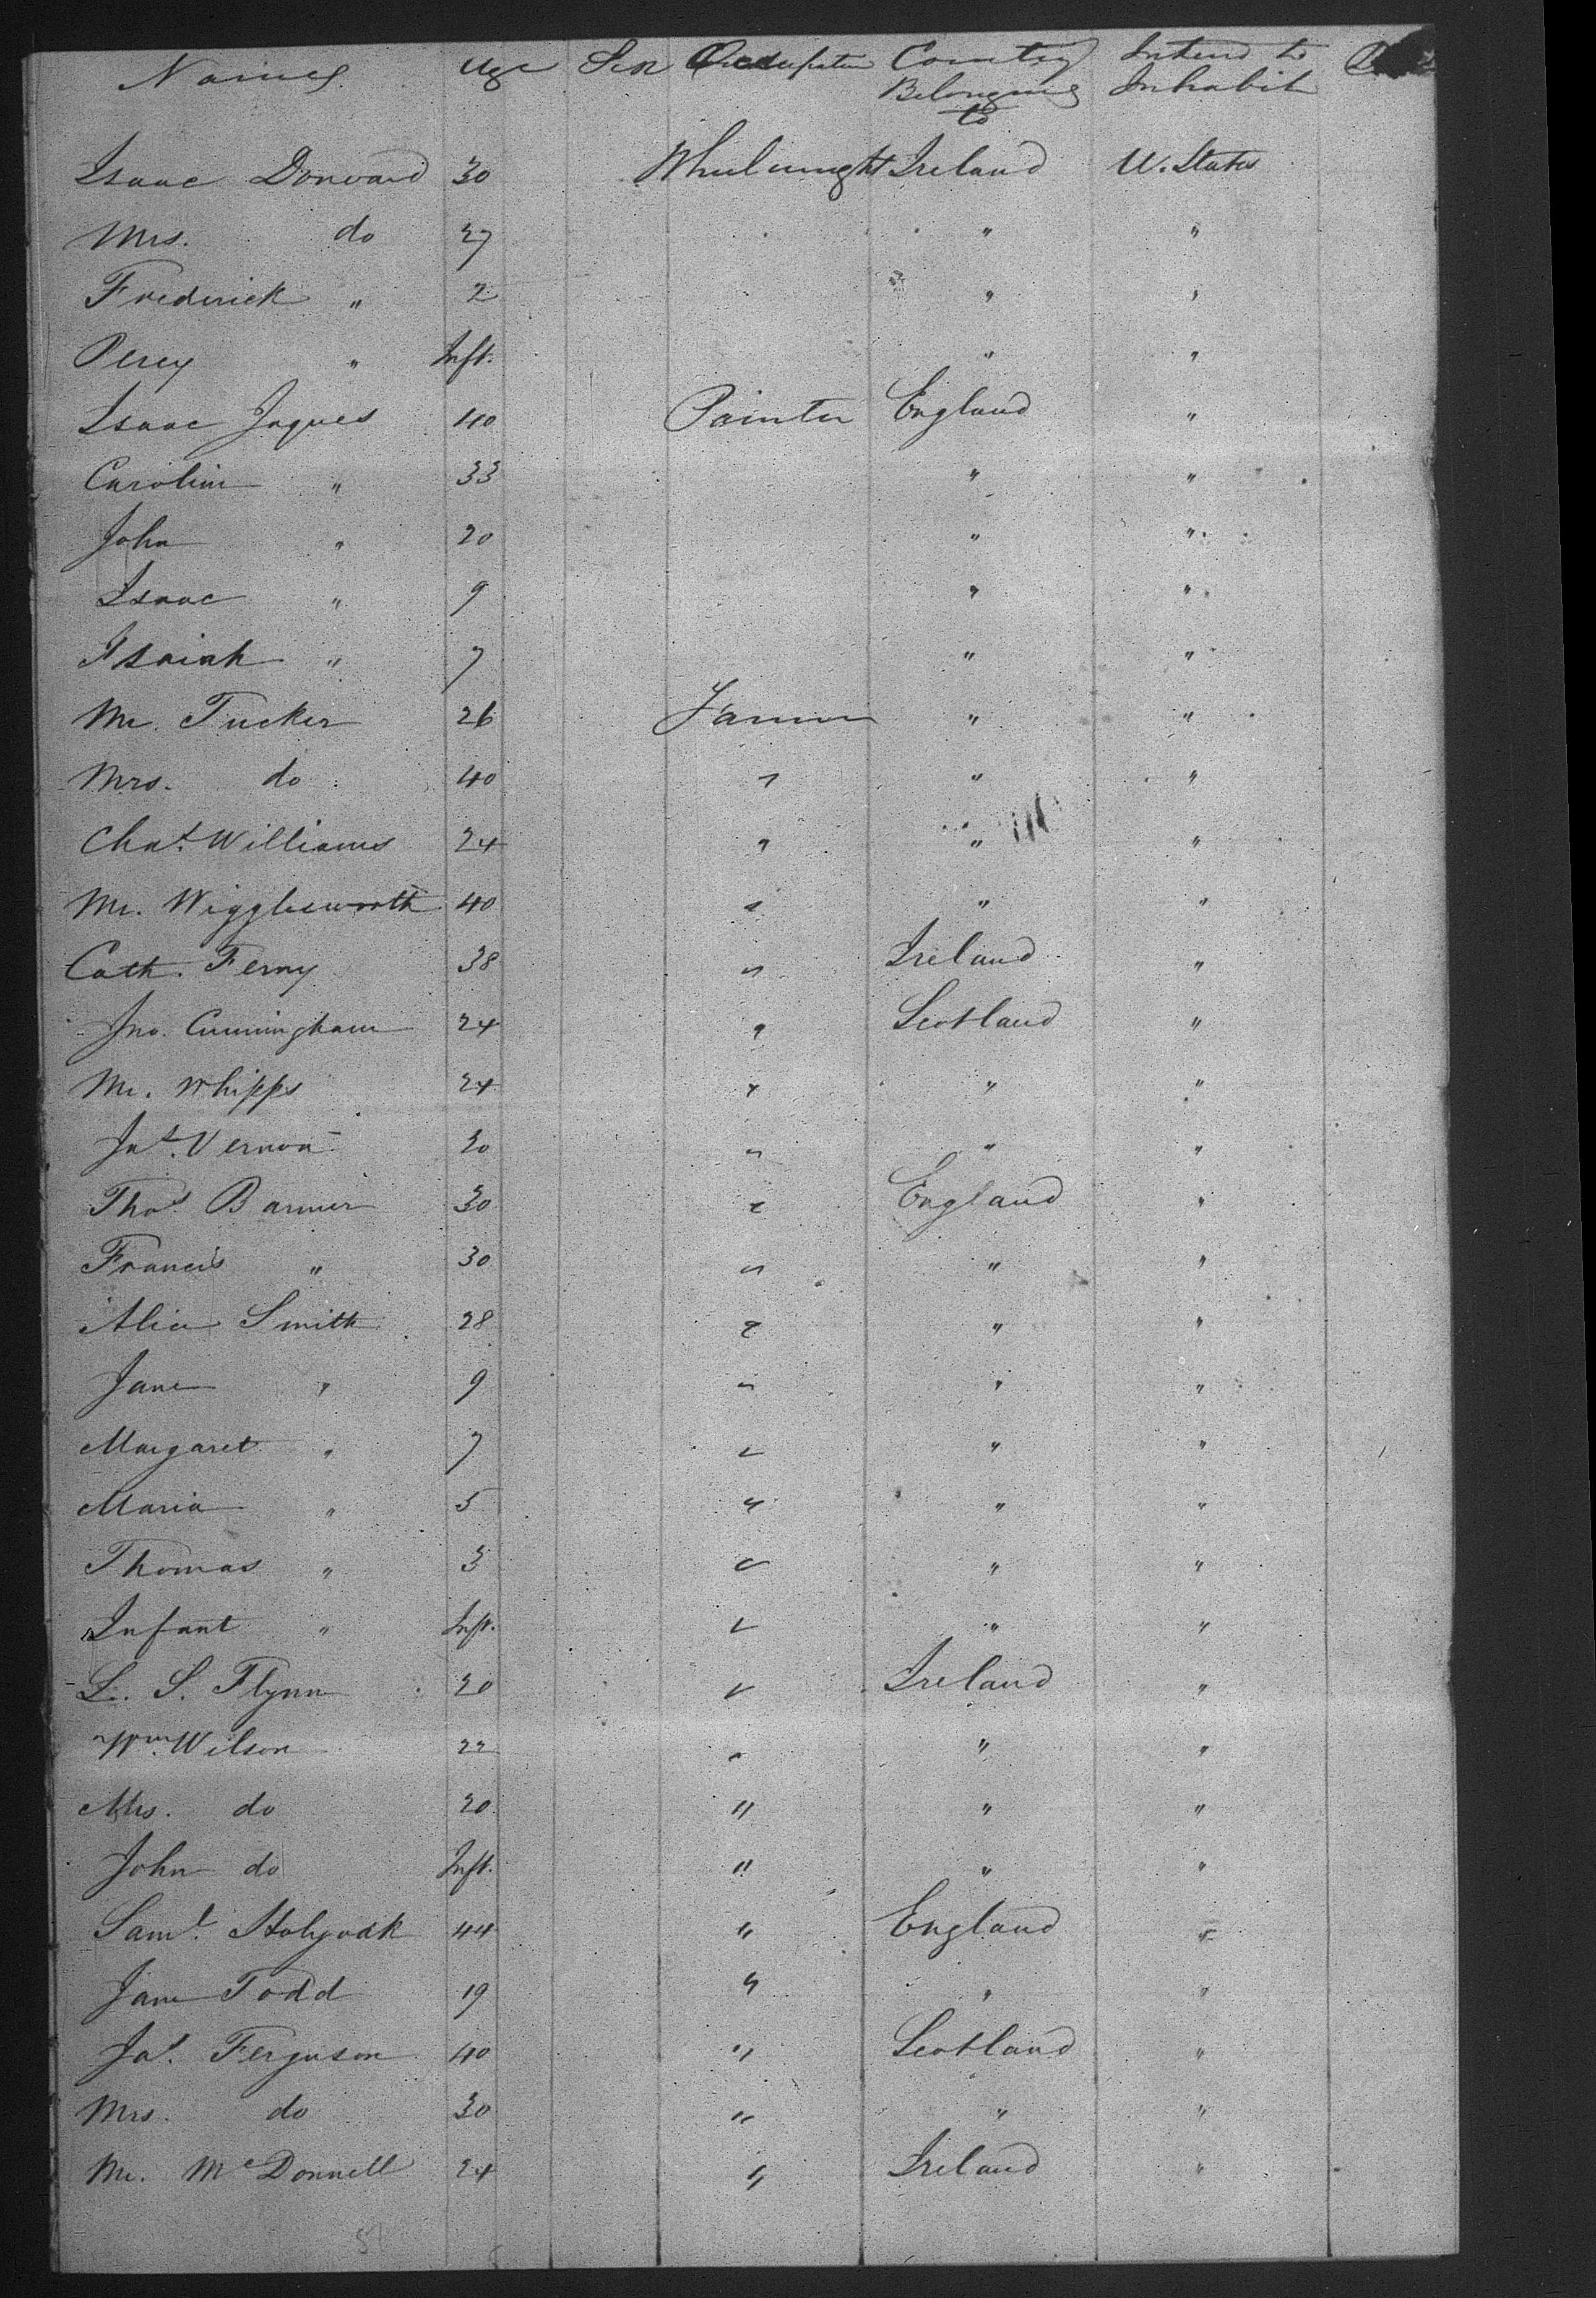 Names Age Sex Occupation Country Belonging to Intend to Inhabit
Isaac Donvard 30 Wheelwright Ireland U. States
Mrs. do 27 " "
Frederick " 2 " "
Percy " Inft. " "
Isaac Jaques 40 Painter England "
Carolin " 33 " "
John " 20 " "
Isaac " 9 " "
Isaiah " 7 " "
Mr. Tucker 26 Farmer " "
Mrs. do 40 " " "
Chas. Williams 24 " " "
Mr. Wigglesworth 40 " " "
Cath. Ferny 38 " Ireland "
Jno. Cunningham 24 " Scotland "
Mr. Whipps 24 " " "
Jas. Vernon 30 " " "
Thos. Barmer 30 " England "
Francis " 30 " " "
Alice Smith 28 " " "
Jane " 9 " " "
Margaret " 7 " " "
Maria " 5 " " "
Thomas " 3 " " "
Infant " Inft. " " "
L. S. Flynn 20 " Ireland "
Wm. Wilson 22 " " "
Mrs. do 20 " " "
John do Inft. " " "
Saml. Holyoak 44 " England "
Jane Todd 19 " " "
Jas. Ferguson 40 " Scotland "
Mrs. do 30 " " "
Mr. McDonnell 24 " Ireland "